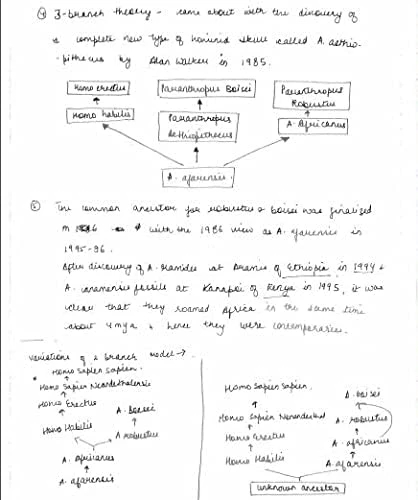 ④ 3-branch theory - came about with the discovery of
a complete new type of hominid skull called A. aethio-
-pithecus by Alan Walker in 1985.
Homo erectus
Paranthropus Boisei
Paranthropus Robustus
Homo habilis
Paranthropus Aethiopithecus
A. Africanus
A. afarensis
⑤ The common ancestor for robustus & boisei was finalized
in 1986 with the 1986 view as A. afarensis in
1995-96.
After discovery of A. Ramides at Aramis of Ethiopia in 1994 &
A. anamensis fossils at Kanapoi of Kenya in 1995, it was
clear that they roamed Africa in the same time
about 4 mya & hence they were contemporaries.
Variations of 2 branch model →
Homo Sapien Sapien.
Homo Sapien Neanderthalensis
Homo Erectus
Homo Habilis
A. Boisei
A. robustus
A. africanus
A. afarensis
Homo Sapien Sapien.
Homo Sapien Neanderthal
Homo Erectus
Homo Habilis
A. boisei
A. robustus
A. africanus
A. afarensis
unknown ancestor